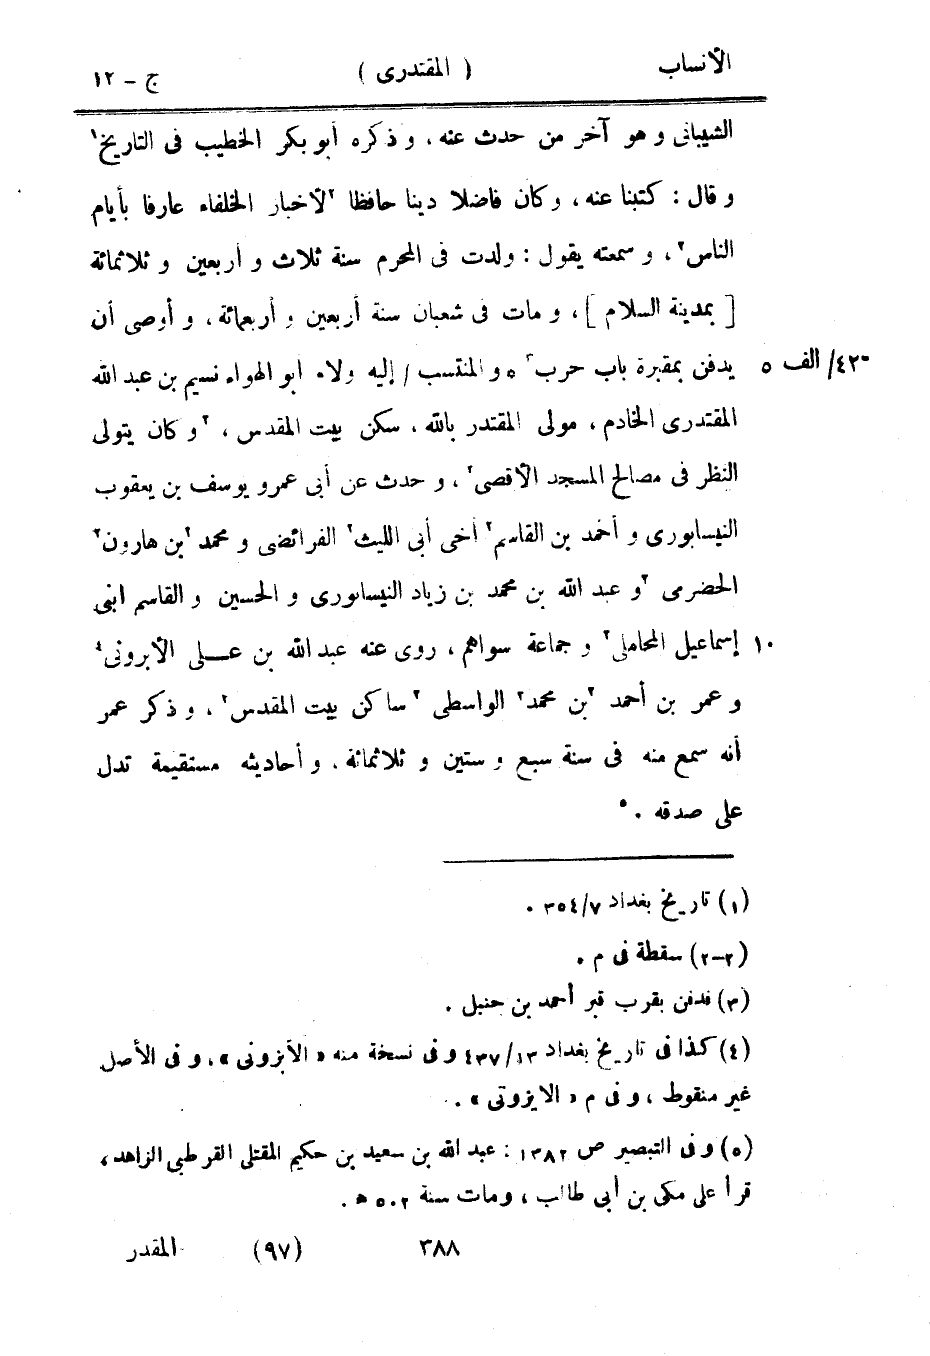 الأنساب ( المقتدرى ) ج – ١٢
الشيبانى و هو آخر من حدث عنه، و ذكره أبو بكر الخطيب فى التاريخ١
و قال : كتبنا عنه، وكان فاضلا دينا حافظا ٢لأخبار الخلفاء عارفا بأيام
الناس٢، و سمعته يقول : ولدت فى المحرم سنة ثلاث و أربعين و ثلاثمائة
[ بمدينة السلام ]، و مات فى شعبان سنة أربعين و أربعمائة، و أوصى أن
٤٢٠/ الف ٥ يدفن بمقبرة باب حرب٣ ٥ و المنتسب / إليه ولاء ابو الهواء نسيم بن عبد الله
المقتدرى الخادم، مولى المقتدر بالله، سكن بيت المقدس، ٢و كان يتولى
النظر فى مصالح المسجد الأقصى٢، و حدث عن أبى عمرو يوسف بن يعقوب
النيسابورى و أحمد بن القاسم٢ أخى أبى الليث٢ الفرائضى و محمد ٢بن هارون٢
الحضرمى ٢و عبد الله بن محمد بن زياد النيسابورى و الحسين و القاسم ابنى
١٠ إسماعيل المحاملى٢ و جماعة سواهم، روى عنه عبد الله بن عـلى الأبرونى٤
و عمر بن أحمد ٢بن محمد٢ الواسطى ٢ساكن بيت المقدس٢، و ذكر عمر
أنه سمع منه فى سنة سبع و ستين و ثلاثمائة، و أحاديثه مستقيمة تدل
على صدقه .٥
(١) تاريخ بغداد ٧/٣٥٤ .
(٢–٢) سقطة فى م .
(٣) فدفن بقرب قبر أحمد بن حنبل .
(٤) كذا فى تاريخ بغداد ١٣/٤٣٧ و فى نسخة منه « الأبزونى »، و فى الأصل
غير منقوط، و فى م « الايزوتى » .
(٥) و فى التبصير ص ١٣٨٢ : عبد الله بن سعيد بن حكيم المقتلى القرطبى الزاهد،
قرأ على مكى بن أبى طالب، و مات سنة ٥٠٢ ه .
٣٨٨ (٩٧) المقدر